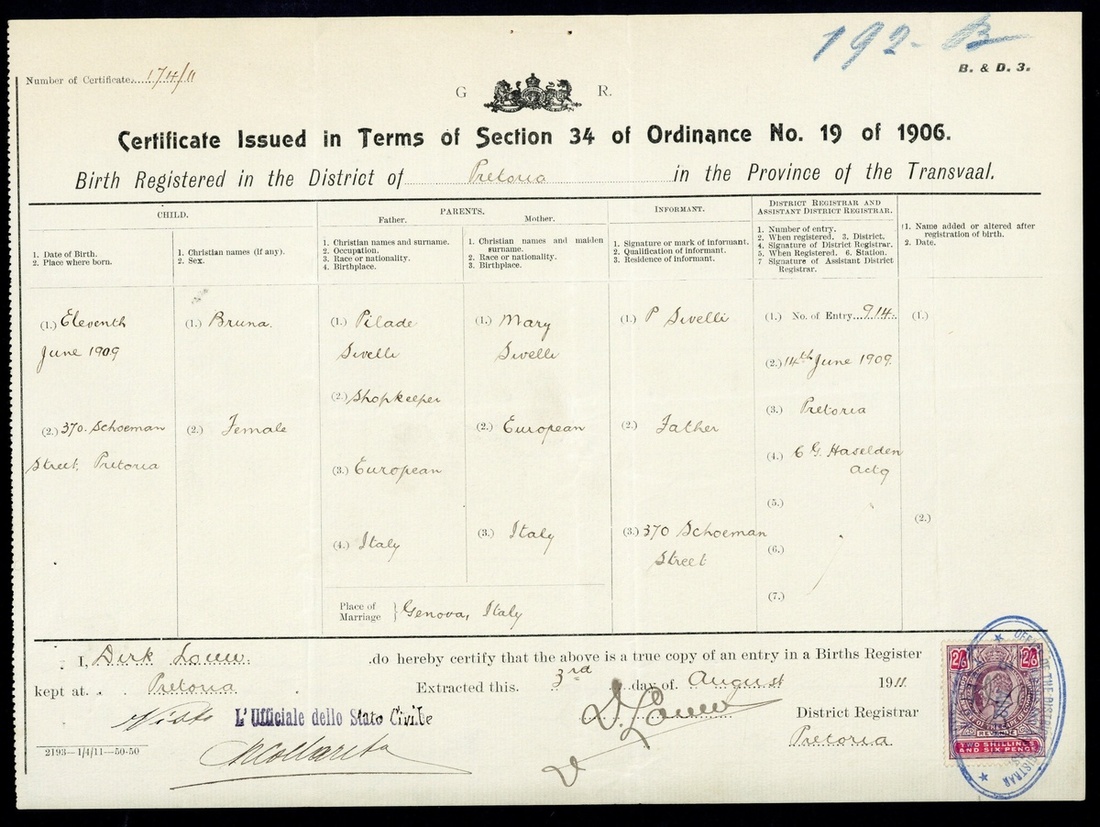 192. B
B. & D. 3.
Number of Certificate 174/11
G R.
Certificate Issued in Terms of Section 34 of Ordinance No. 19 of 1906.
Birth Registered in the District of Pretoria in the Province of the Transvaal.
CHILD.
1. Date of Birth.
2. Place where born.
1. Christian names (if any).
2. Sex.
PARENTS.
Father.
1. Christian names and surname.
2. Occupation.
3. Race or nationality.
4. Birthplace.
Mother.
1. Christian names and maiden
surname.
2. Race or nationality.
3. Birthplace.
INFORMANT.
1. Signature or mark of informant.
2. Qualification of informant.
3. Residence of informant.
DISTRICT REGISTRAR AND
ASSISTANT DISTRICT REGISTRAR.
1. Number of entry.
2. When registered. 3. District.
4. Signature of District Registrar.
5. When Registered. 6. Station.
7 Signature of Assistant District
Registrar.
1. Name added or altered after
registration of birth.
2. Date.
(1.) Eleventh
June 1909
(2.) 370. Schoeman
Street, Pretoria
(1.) Bruna.
(2.) Female
(1.) Pilade
Sivelli
(2.) Shopkeeper
(3.) European
(4.) Italy
(1.) Mary
Sivelli
(2.) European
(3.) Italy
Place of
Marriage } Genova, Italy
(1.) P Sivelli
(2.) Father
(3.) 370 Schoeman
Street
(1.) No. of Entry 914.
(2.) 14th June 1909.
(3.) Pretoria
(4.) C G. Haselden
actg
(5.)
(6.)
(7.)
(1.)
(2.)
I, Dirk Louw. do hereby certify that the above is a true copy of an entry in a Births Register
kept at Pretoria Extracted this 3rd day of August 1911
Visto L'Ufficiale dello Stato Civile
D. Louw District Registrar
Pretoria
2193—1/4/11—50-50
2/6 2/6
REVENUE
TWO SHILLINGS
AND SIX PENCE
OFFICE OF THE DISTRICT REGISTRAR